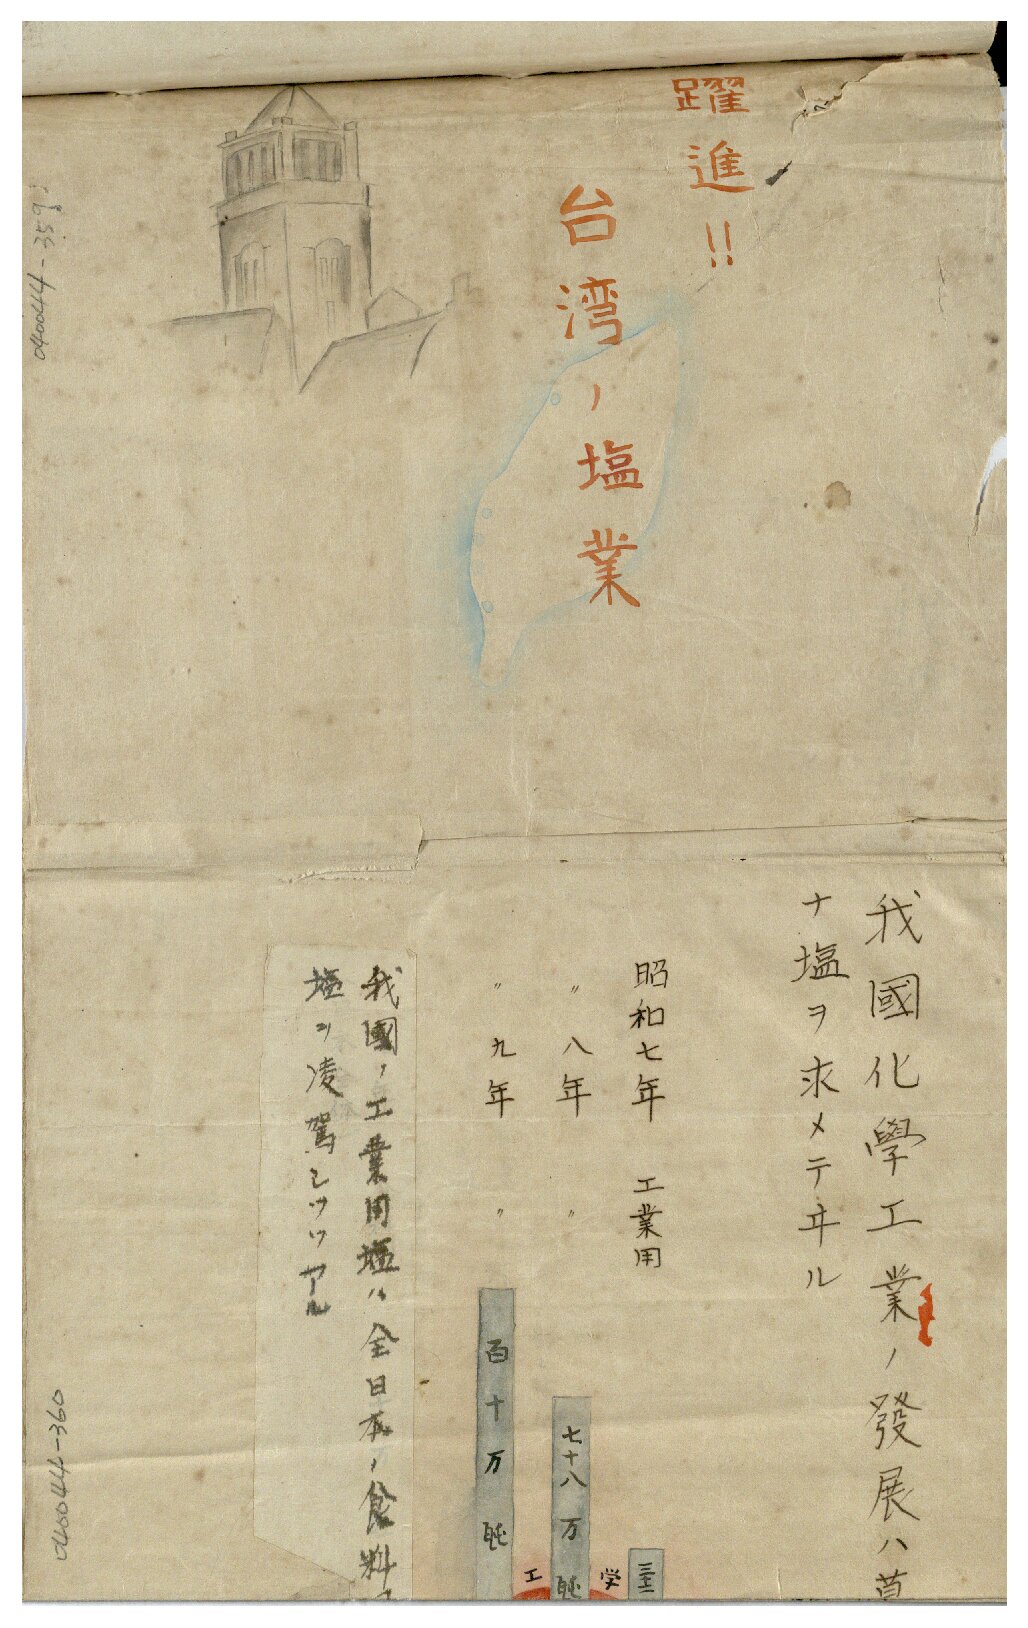 躍進!!
台湾ノ塩業
d40044-359
我國化学工業ノ發展ハ莫
ナ塩ヲ求メテヰル
昭和七年 工業用
〃 八年 〃
七十八万瓲
〃 九年 〃
百十万瓲
学
工
我國ノ工業用塩ハ全日本ノ食料
塩ヲ凌駕シツツアル
d40044-360